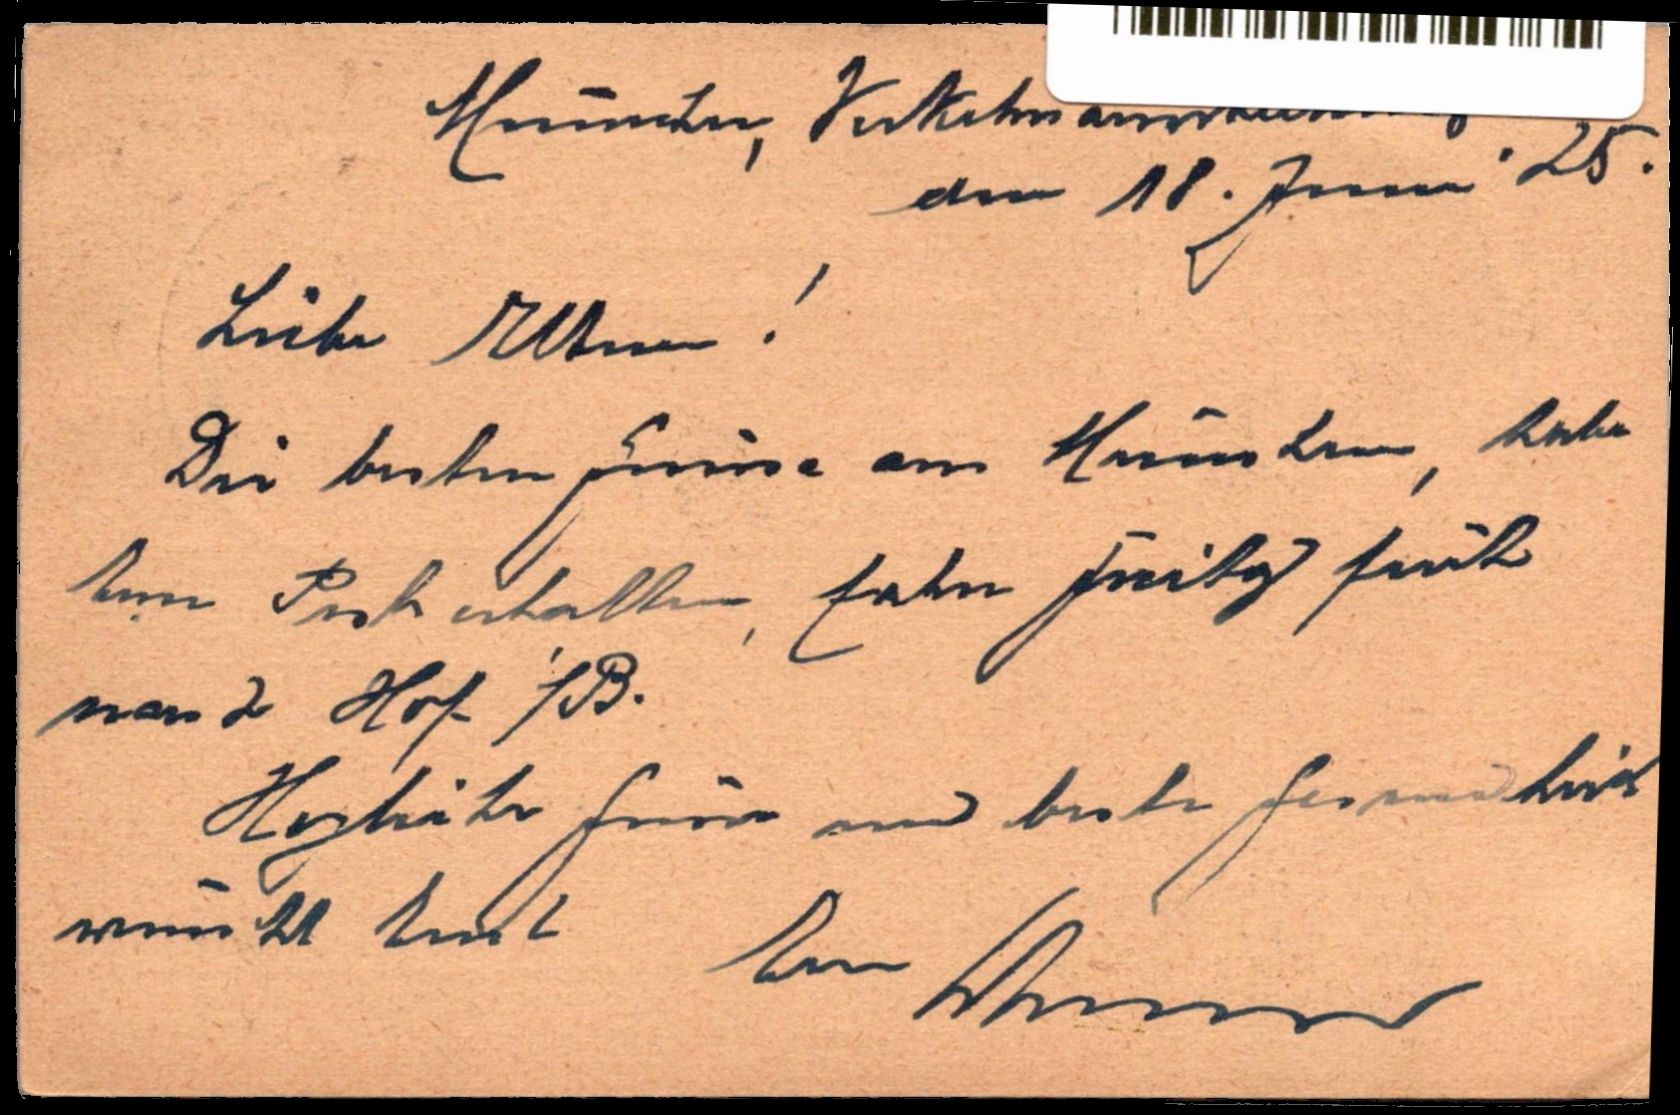 München, Verkehrsausstellung
den 18. Juni 25.
Liebe Eltern!
Die besten Grüsse aus München, habe
Eure Post erhalten, fahre Freitag früh
nach Hof i/B.
Herzliche Grüsse und beste Gesundheit
wünscht Euch
Euer